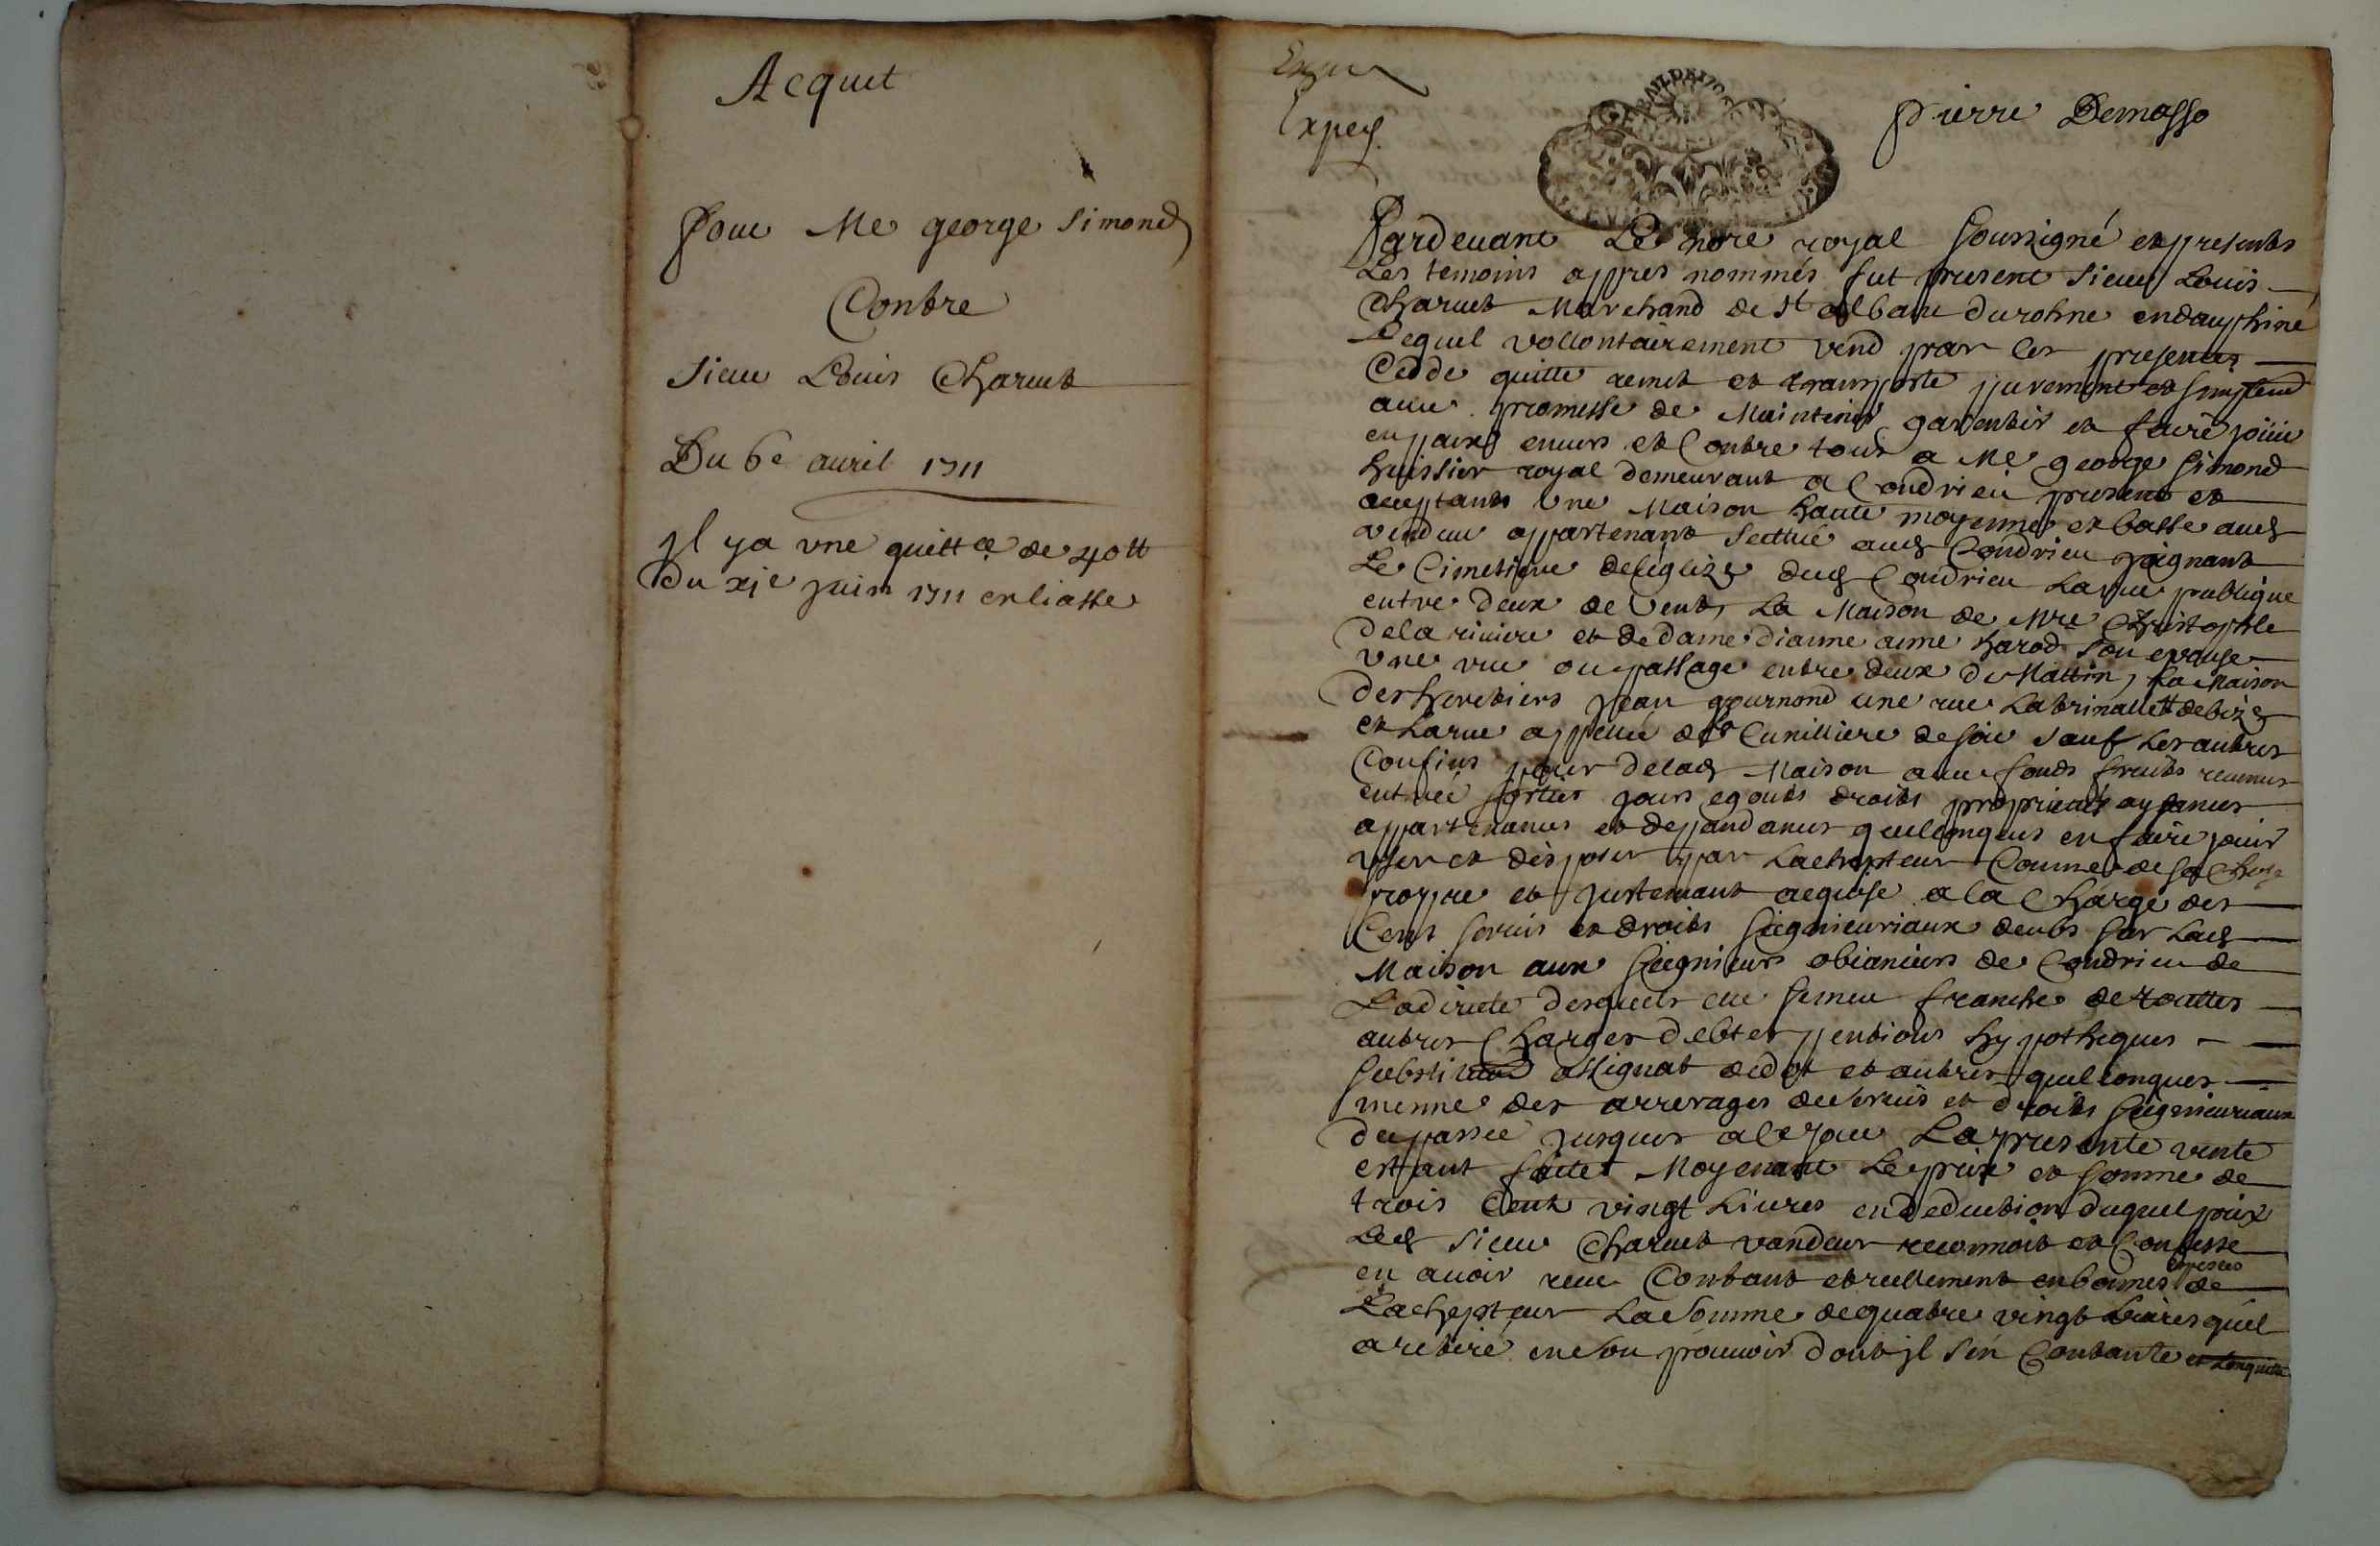 Acquit
Pour Me george Simond
Contre
Sieur Louis Charvet
Du 6e avril 1711
jl ya vne quittce de 40 tt
du xje juin 1711 en liasse
Exped
pierre Demasso
Pardevant Le nore royal soussigné et presents
Les temoins appres nommés fut present sieur Louis
Charvet Marchand de St alban du rohne en dauphiné
Lequel vollontairement vend par les presentes
Cedde quitte remet et transporte purement et simplemt
avec promesse de Maintenir garentir et faire joüir
en paix envers et Contre tous a Me george Simond
huissier royal demeurant a Condrieu present et
acceptant Une Maison haute moyenne et basse aud
vendeur appartenant scittué aud Condrieu joignant
Le Cimetiere de leglize dud Condrieu La rue publique
entre deux de vent, La Maison de Mre Christophle
de la riviere et de dame dianne aime harod son epouse
vne rue ou passage entre deux de Mattin, La Maison
des heretiers jean gournond une rue Latrinalle tt de bize
et La rue appellé de Cunilliere de soir sauf Les autres
Confins pour de lad Maison avec fonds fruits revenus
entrée sorties jours egouts droits proprietés aysances
appartenances et deppandances quelconques en faire jouir
vser et disposer par Lachepteur Comme de sa Chose
propre et justemant acquise a la Charge des
Cens servis et droits seigneuriaux deubs sur Lad
Maison aux seigneurs obeanciers de Condrieu de
La directe desquels elle se meu franche de touttes
autres Charges debtes pentions hypotheques
substitution assignat de dot et autres quelconques
mesme des arrerages de servis et droits seigneuriaux
du passée jusques a ce jour La presente vente
estant faite Moyenant Le prix et somme de
trois Cent vingt Livres en deduction duquel prix
Led Sieur Charvet vandeur reconnoit et Confesse
en avoir receu Contant et reellement en bonnes especes de
Lachepteur La Somme de quatre vingt Livres quil
a retiré en son pouvoir dont jl s'en Contante